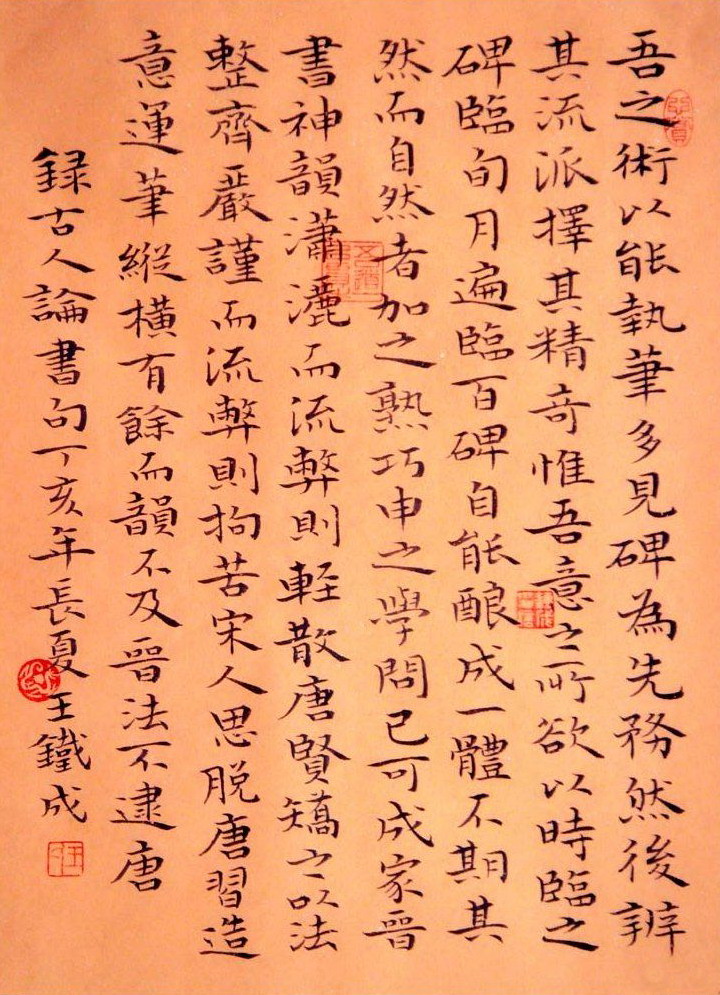 吾之術以能執筆多見碑為先務然後辨
其流派擇其精奇惟吾意之所欲以時臨之
碑臨旬月遍臨百碑自能釀成一體不期其
然而自然者加之熟巧申之學問已可成家晉
書神韻瀟灑而流弊則輕散唐賢矯之以法
整齊嚴謹而流弊則拘苦宋人思脱唐習造
意運筆縱橫有餘而韻不及晉法不逮唐
録古人論書句丁亥年長夏王鐵成